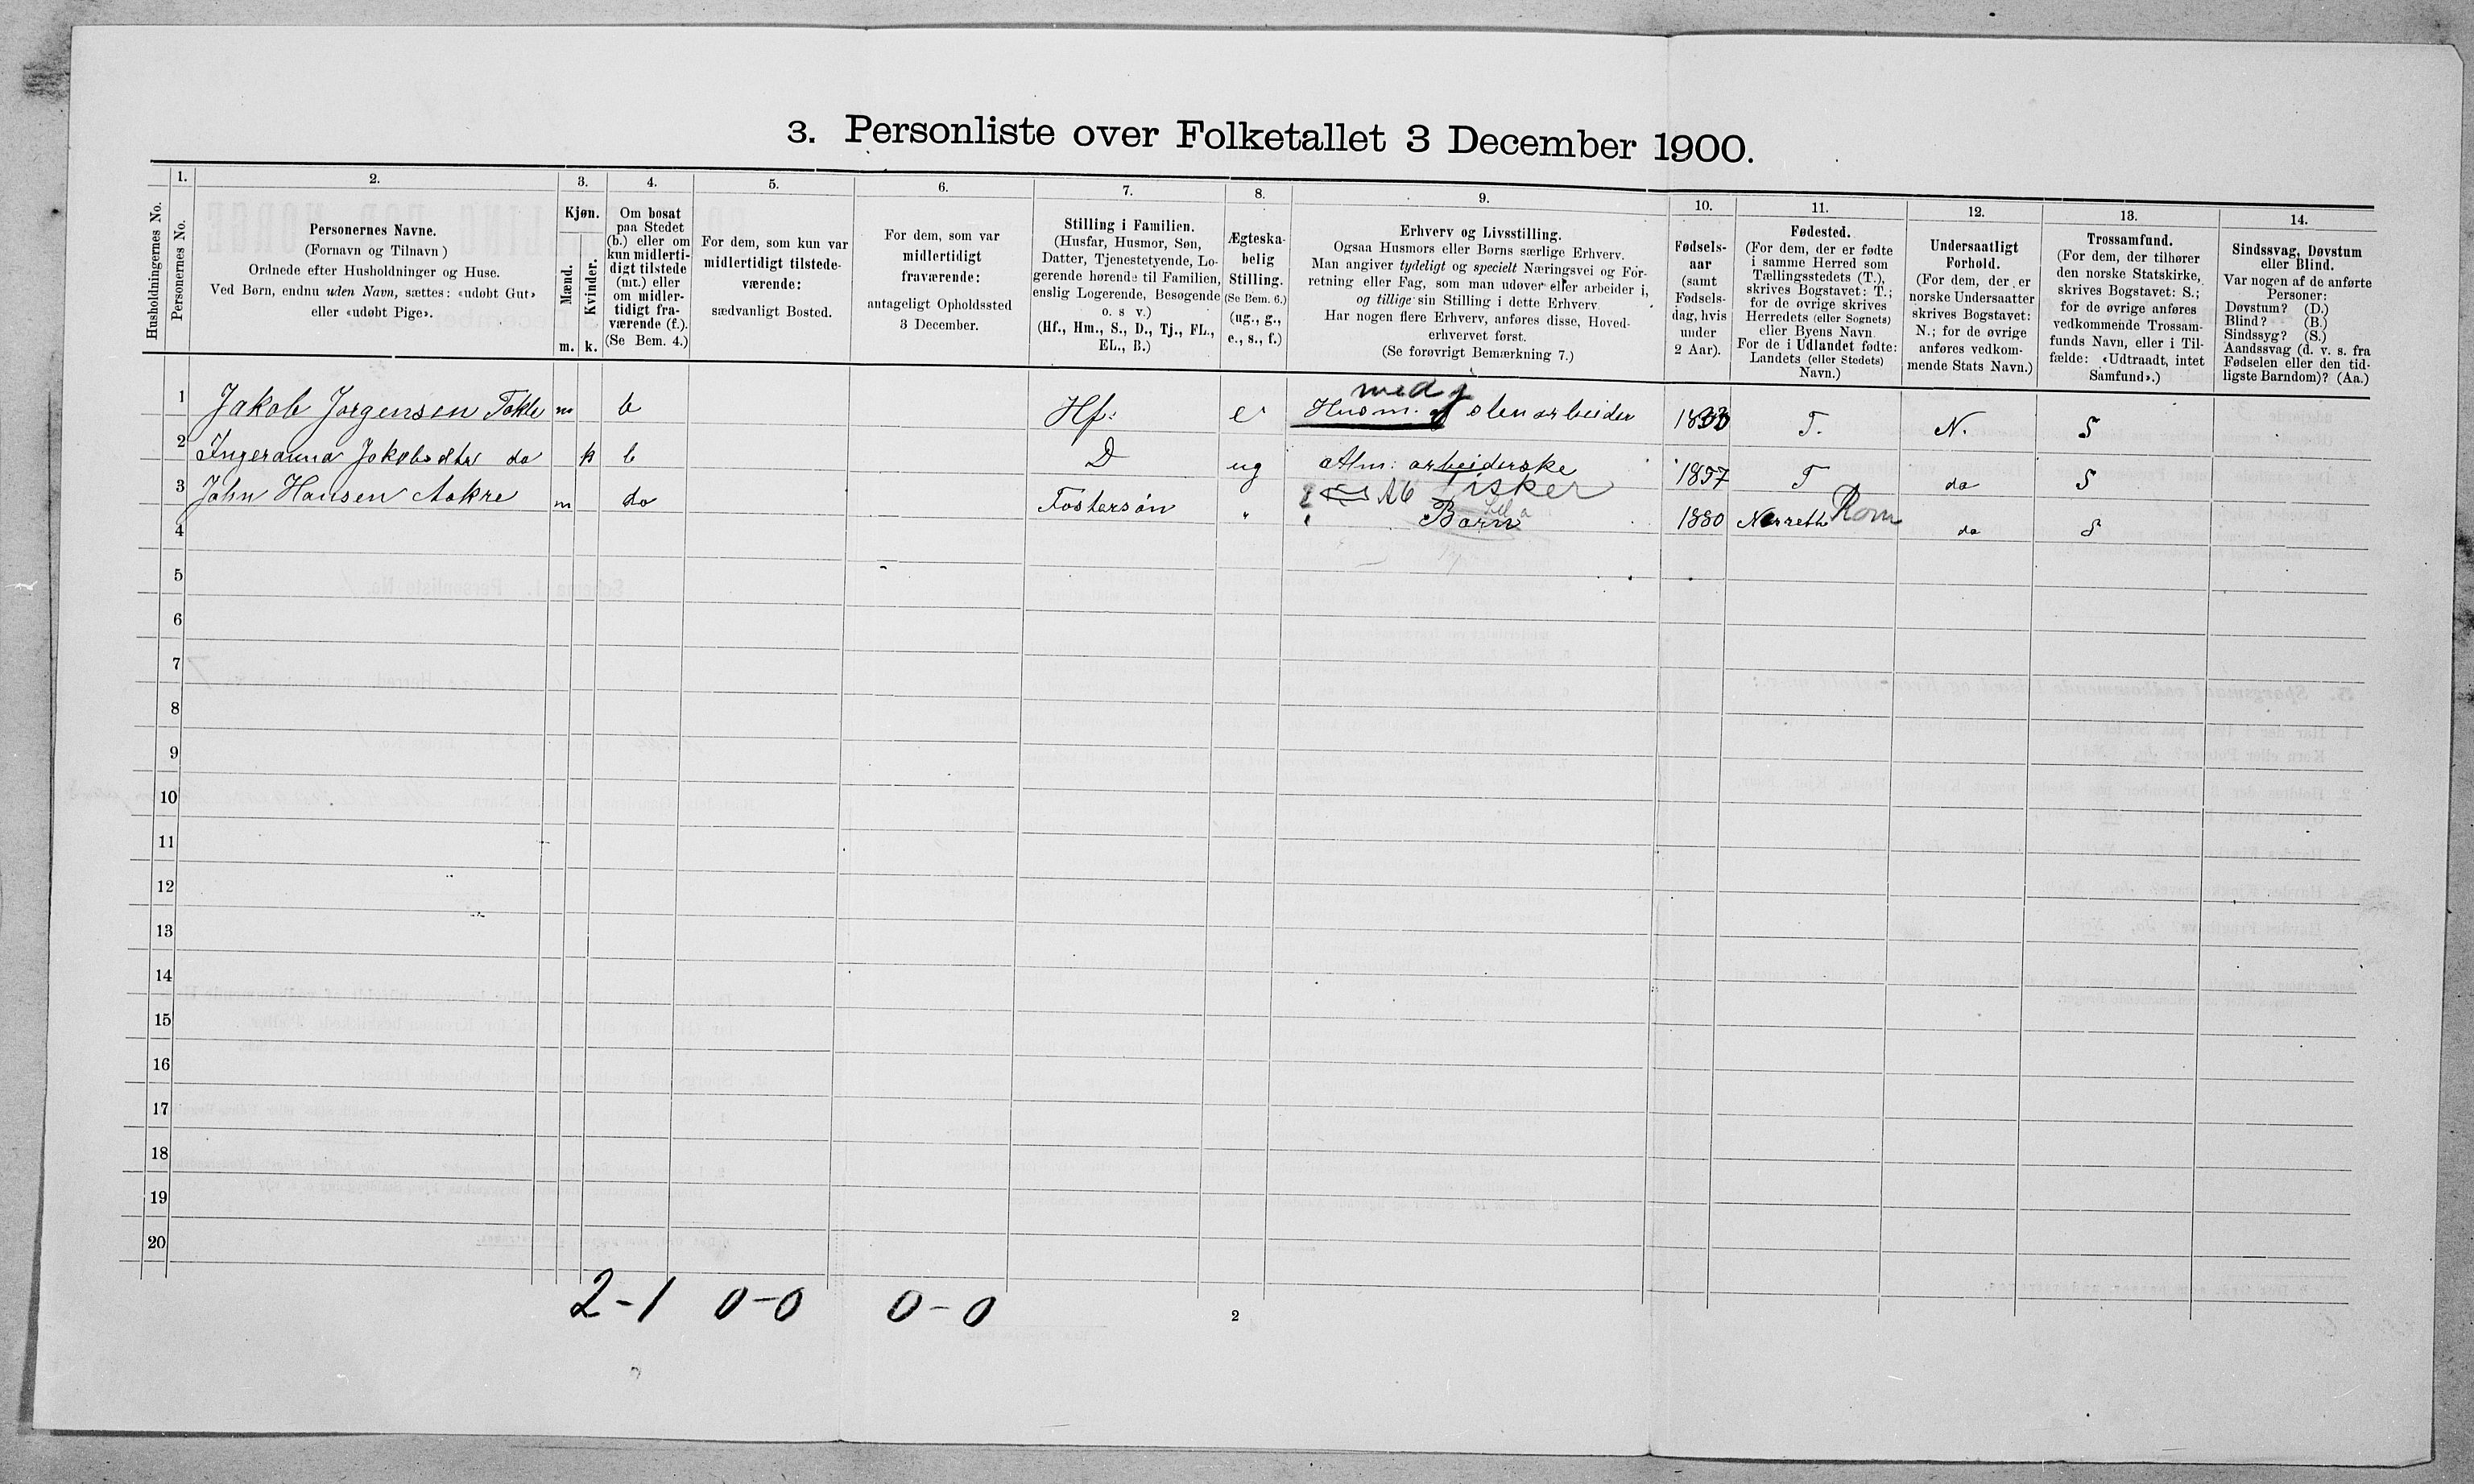 3. Personliste over Folketallet 3 December 1900.
Husholdningernes No.
1.
Personernes No.
2.
Personernes Navne.
(Fornavn og Tilnavn )
Ordnede efter Husholdninger og Huse.
Ved Børn, endnu uden Navn, sættes: «udøbt Gut»
eller «udøbt Pige».
3.
Kjøn.
Mænd.
Kvinder.
m.
k.
4.
Om bosat
paa Stedet
(b.) eller om
kun midlerti-
digt tilstede
(mt.) eller
om midler-
tidigt fra-
værende (f.).
(Se Bem. 4.)
5.
For dem, som kun var
midlertidigt tilstede-
værende:
sædvanligt Bosted.
6.
For dem, som var
midlertidigt
fraværende:
antageligt Opholdssted
3 December.
7.
Stilling i Familien.
(Husfar, Husmor, Søn,
Datter, Tjenestetyende, Lo-
gerende hørende til Familien,
enslig Logerende, Besøgende
o. s v.)
(Hf., Hm., S., D., Tj., FL.,
EL., B.)
8.
Ægteska-
belig
Stilling.
(Se Bem. 6.)
(ug., g.,
e., s., f.)
9.
Erhverv og Livsstilling.
Ogsaa Husmors eller Børns særlige Erhverv.
Man angiver tydeligt og specielt Næringsvei og For-
retning eller Fag, som man udøver eller arbeider i,
og tillige sin Stilling i dette Erhverv.
Har nogen flere Erhverv, anføres disse, Hoved-
erhvervet først.
(Se forøvrigt Bemærkning 7.)
10.
Fødsels-
aar
(samt
Fødsels-
dag, hvis
under
2 Aar).
11.
Fødested.
(For dem, der er fødte
i samme Herred som
Tællingsstedets (T.),
skrives Bogstavet: T.;
for de øvrige skrives
Herredets (eller Sognets)
eller Byens Navn
For de i Udlandet fødte:
Landets (eller Stedets)
Navn.)
12.
Undersaatligt
Forhold.
(For dem, der er
norske Undersaatter
skrives Bogstavet:
N.; for de øvrige
anføres vedkom-
mende Stats Navn.)
13.
Trossamfund.
(For dem, der tilhører
den norske Statskirke,
skrives Bogstavet: S.;
for de øvrige anføres
vedkommende Trossam-
funds Navn, eller i Til-
fælde: «Udtraadt, intet
Samfund».)
14.
Sindssvag, Døvstum
eller Blind.
Var nogen af de anførte
Personer:
Døvstum? (D.)
Blind? (B.)
Sindssyg? (S.)
Aandssvag (d. v. s. fra
Fødselen eller den tid-
ligste Barndom)? (Aa.)
med j
1 Jakob Jørgensen Tokle m b Hf: e Husm. stenarbeider T. N. S
2 Ingeranna Jakobsdtr do k b D ug Alm: arbeiderske 1857 T do S
Fisker
3 John Hansen Aakre m do Fostersøn " Barn 1880 Nerreth Rom do S
4
5
6
7
8
9
10
11
12
13
14
15
16
17
18
19
20
2-1 0-0 0-0
2